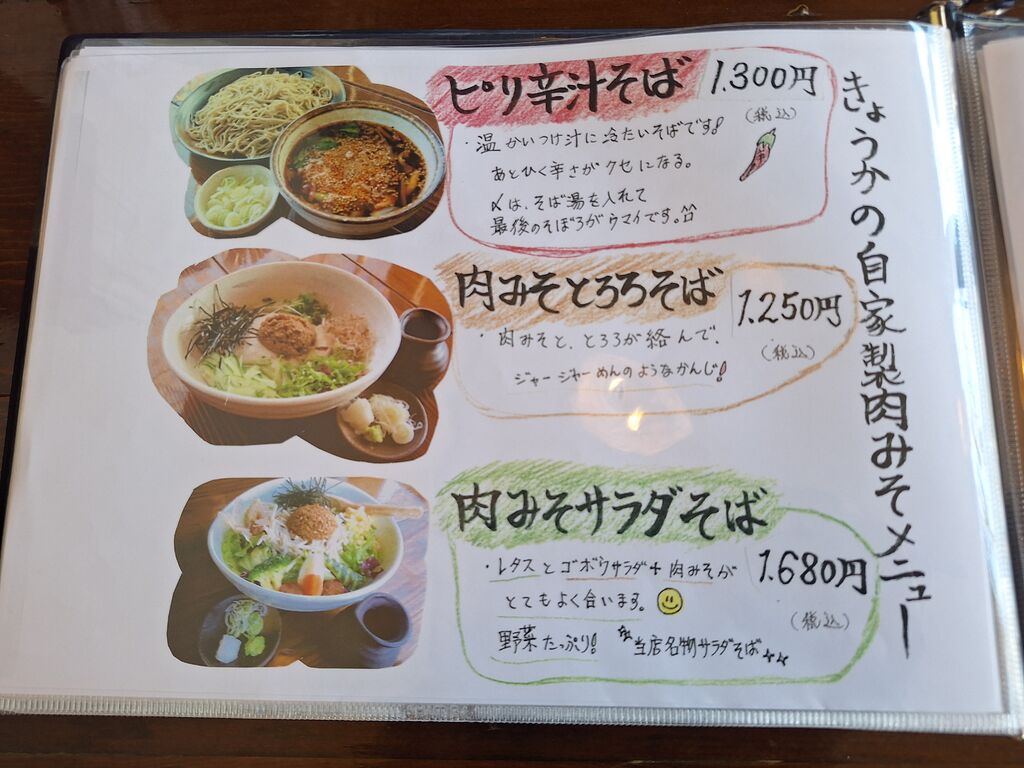 きょうかの自家製肉みそメニュー
ピリ辛汁そば
1.300円
(税込)
・温かいつけ汁に冷たいそばです!
あとひく辛さがクセになる。
〆は、そば湯を入れて
最後のそぼろがウマイです。
肉みそとろろそば
1.250円
(税込)
・肉みそと、とろろが絡んで、
ジャージャーめんのようなかんじ!
肉みそサラダそば
1.680円
(税込)
・レタスとゴボウサラダ+肉みそが
とてもよく合います。
野菜たっぷり!
当店名物サラダそば